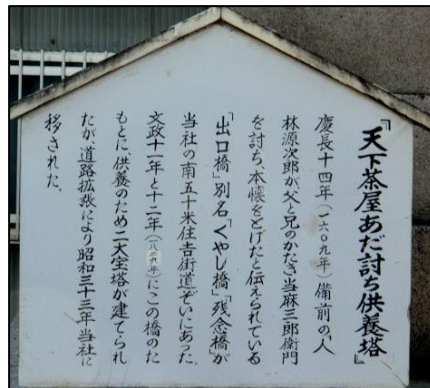 『天下茶屋あだ討ち供養塔』
慶長十四年(一六〇九年)備前の人
林源次郎が、父と兄のかたき当麻三郎衛門
を討ち、本懐をとげたと伝えられている
「出口橋」別名「くやし橋」「残念橋」が
当社の南五十米住吉街道ぞいにあった。
文政十一年と十二年(一八二九年)にこの橋のた
もとに、供養のため二大宝塔が建てられ
たが、道路拡張により昭和三十三年当社に
移された。